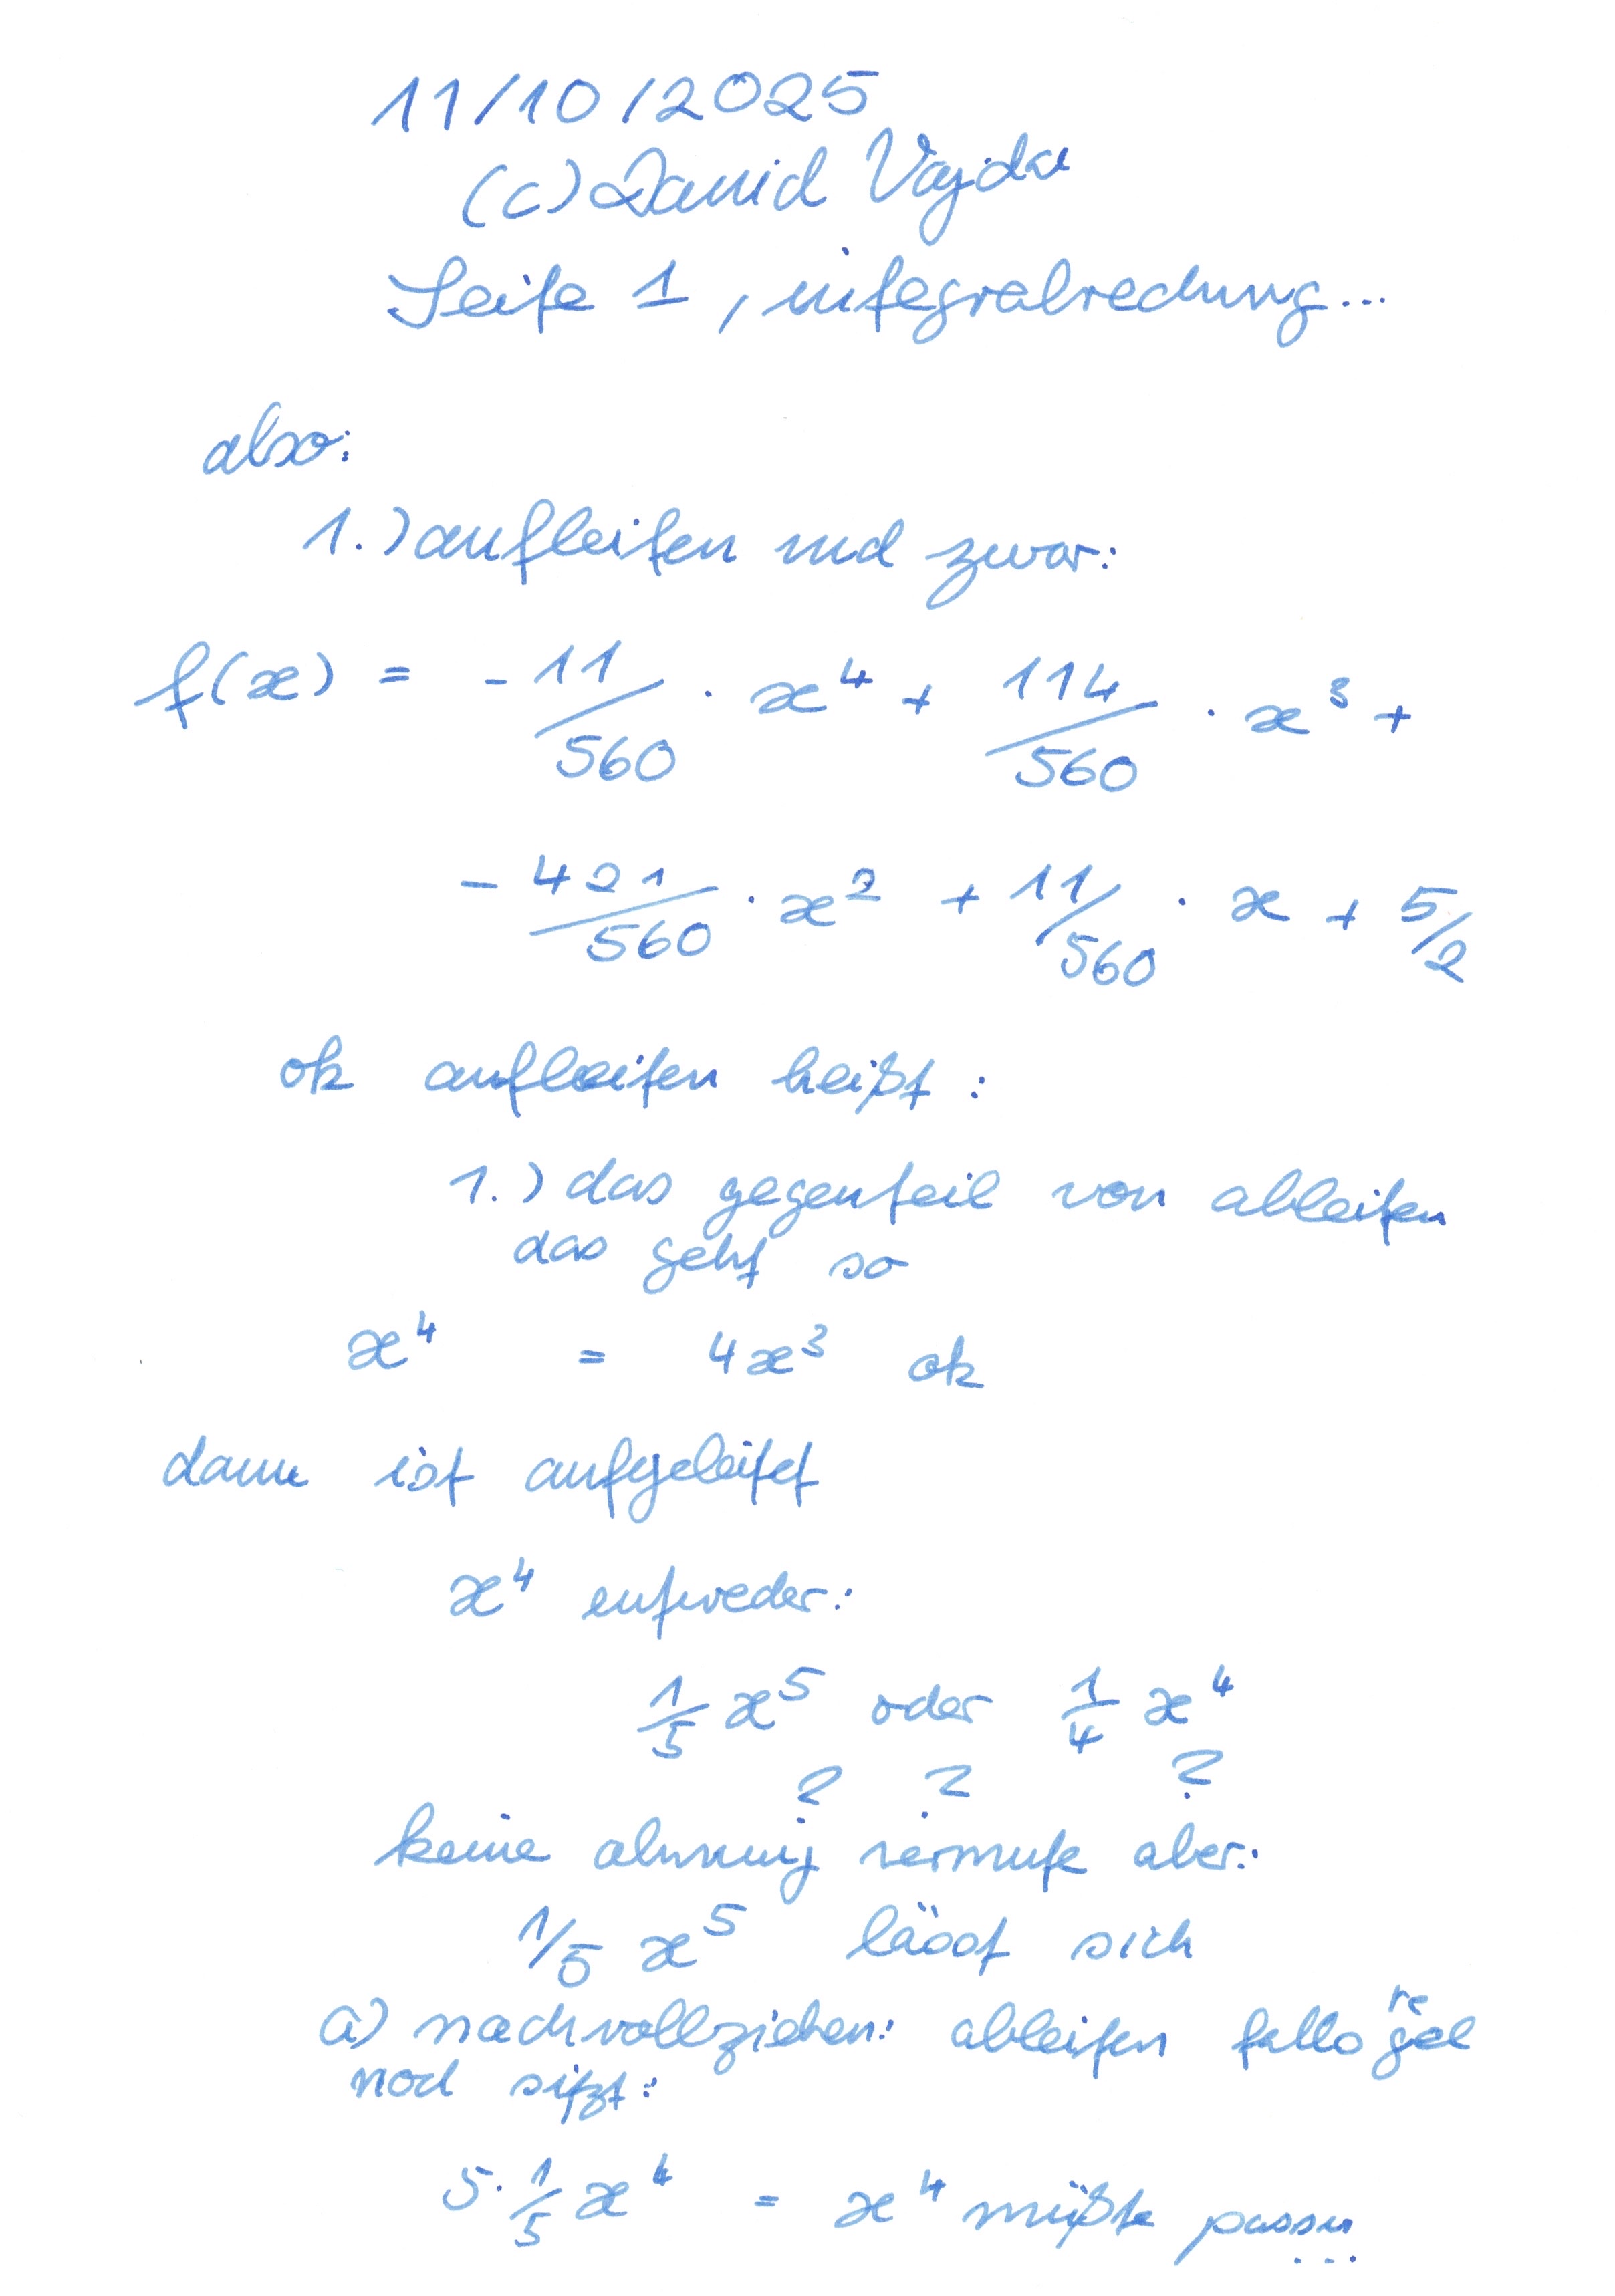 11/10/2025
(c) David Vajda
Seite 1, integralrechung...
also:
1.) aufleiten und zwar:
f(x) = - 11/560 · x^4 + 114/560 · x^3 +
- 421/560 · x^2 + 11/560 · x + 5/2
ok aufleiten heißt:
1.) das gegenteil von ableiten
das geht so
x^4 = 4x^3 ok
dann ist aufgeleitet
x^4 entweder:
1/5 x^5 oder 1/4 x^4
? ? ?
keine ahnung vermute aber:
1/5 x^5 lässt sich
a) nachvollziehen: ableiten falls regel
noch sitzt:
5 · 1/5 x^4 = x^4 müßte passen
...